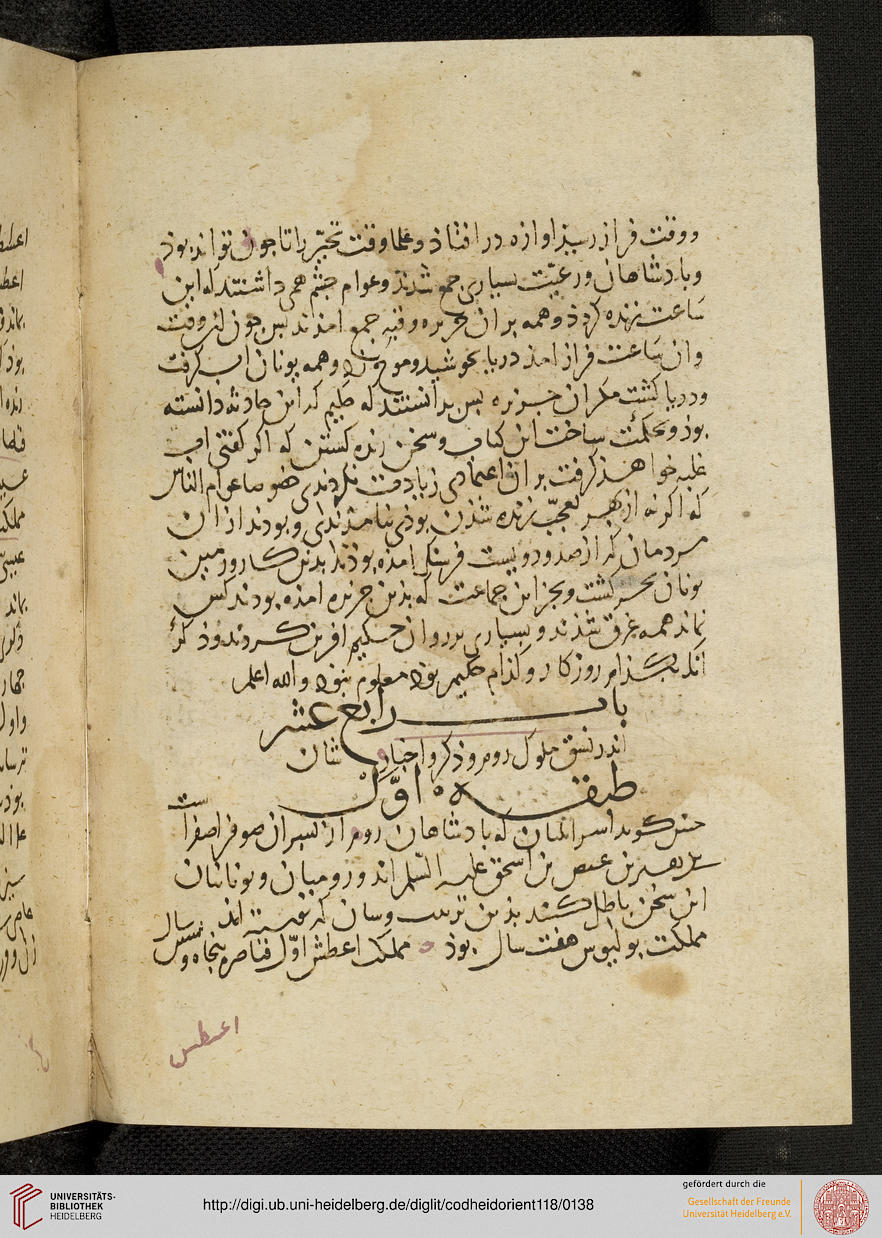 ووقت فراز رسیذ اوازه در افتاذ وعلما وقت تحیّر را تا جون تواند بوذ
وباذشاهان ورعیّت بسیاری جمع شذند وعوام جشم همی داشتند که این
ساعت زنده کردذ وهمه بران جزیره وقبه جمع امذند بس جون وقت
وان ساعت فراز امذ دریا بجوشید وموج وهمه یونان اب کرفت
ودریا کشت مکر ان جزیره بس بدانستند که حکیم که این حادثه دانسته
بوذ وبحکمت ساخت این کتاب وسخن زنده کشتن که اکر کفتی اب
غلبه خواهذ کرفت بران اعتمادی زیادت نکردندی خصوصا عوام الناس
که اکر نه از بهر تعجّب زنده شذن بوذی نیامذندی وبودند از ان
مردمان که از صذ ودویست فرسنک امذه بوذند ابدین کار وزمین
یونان بحر کشت وبجز این جماعت که بذین جزیره امذه بودند کس
نماند همه غرق شذند وبسیاری بر روان حکیم افرین کردند وذکر
انک بکذام روزکار وکذام حکیم بوذ معلوم نبوذ والله اعلم
باب رابع عشر
اندر نسق ملوک روم وذکر واخبار شان
طبقه اوّل
جنین کوید اسرائیلیان که باذشاهان روم از بسران صوفر اصفر است
بن عیص بن اسحق علیه السّلم اند ورومیان ویونانیان
این سخن باطل کنند بذین ترتیب وسان که نبشته اند
مملکت یولیوس هفت سال بوذ مملکت اعطش اوّل قیاصره بنجاه وشش سال
اعطس
UNIVERSITÄTS-
BIBLIOTHEK
HEIDELBERG
http://digi.ub.uni-heidelberg.de/diglit/codheidorient118/0138
gefördert durch die
Gesellschaft der Freunde
Universität Heidelberg e.V.